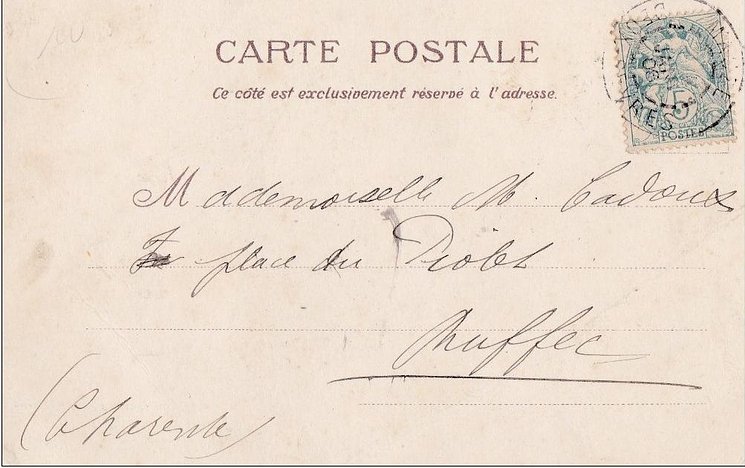 CARTE POSTALE
Ce côté est exclusivement réservé à l'adresse.
5
POSTES
Mademoiselle M. Cadoux
place du Piolet
Ruffec
(Charente)